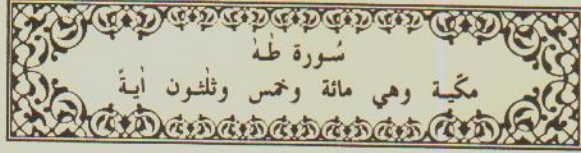 سُورة طٰهٰ
مكّية وهي مائة وخمس وثلٰثون اٰيةً